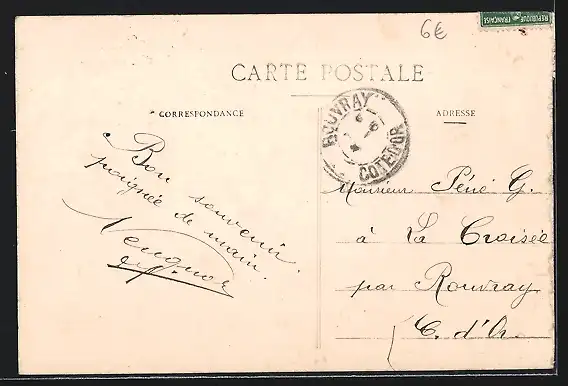 6€
REPUBLIQUE FRANÇAISE
CARTE POSTALE
CORRESPONDANCE
ADRESSE
ROUVRAY
COTE-D'OR
Bon souvenir
poignée de main.
Monsieur Péné G.
à La Croisée
par Rouvray
C. d'Or.